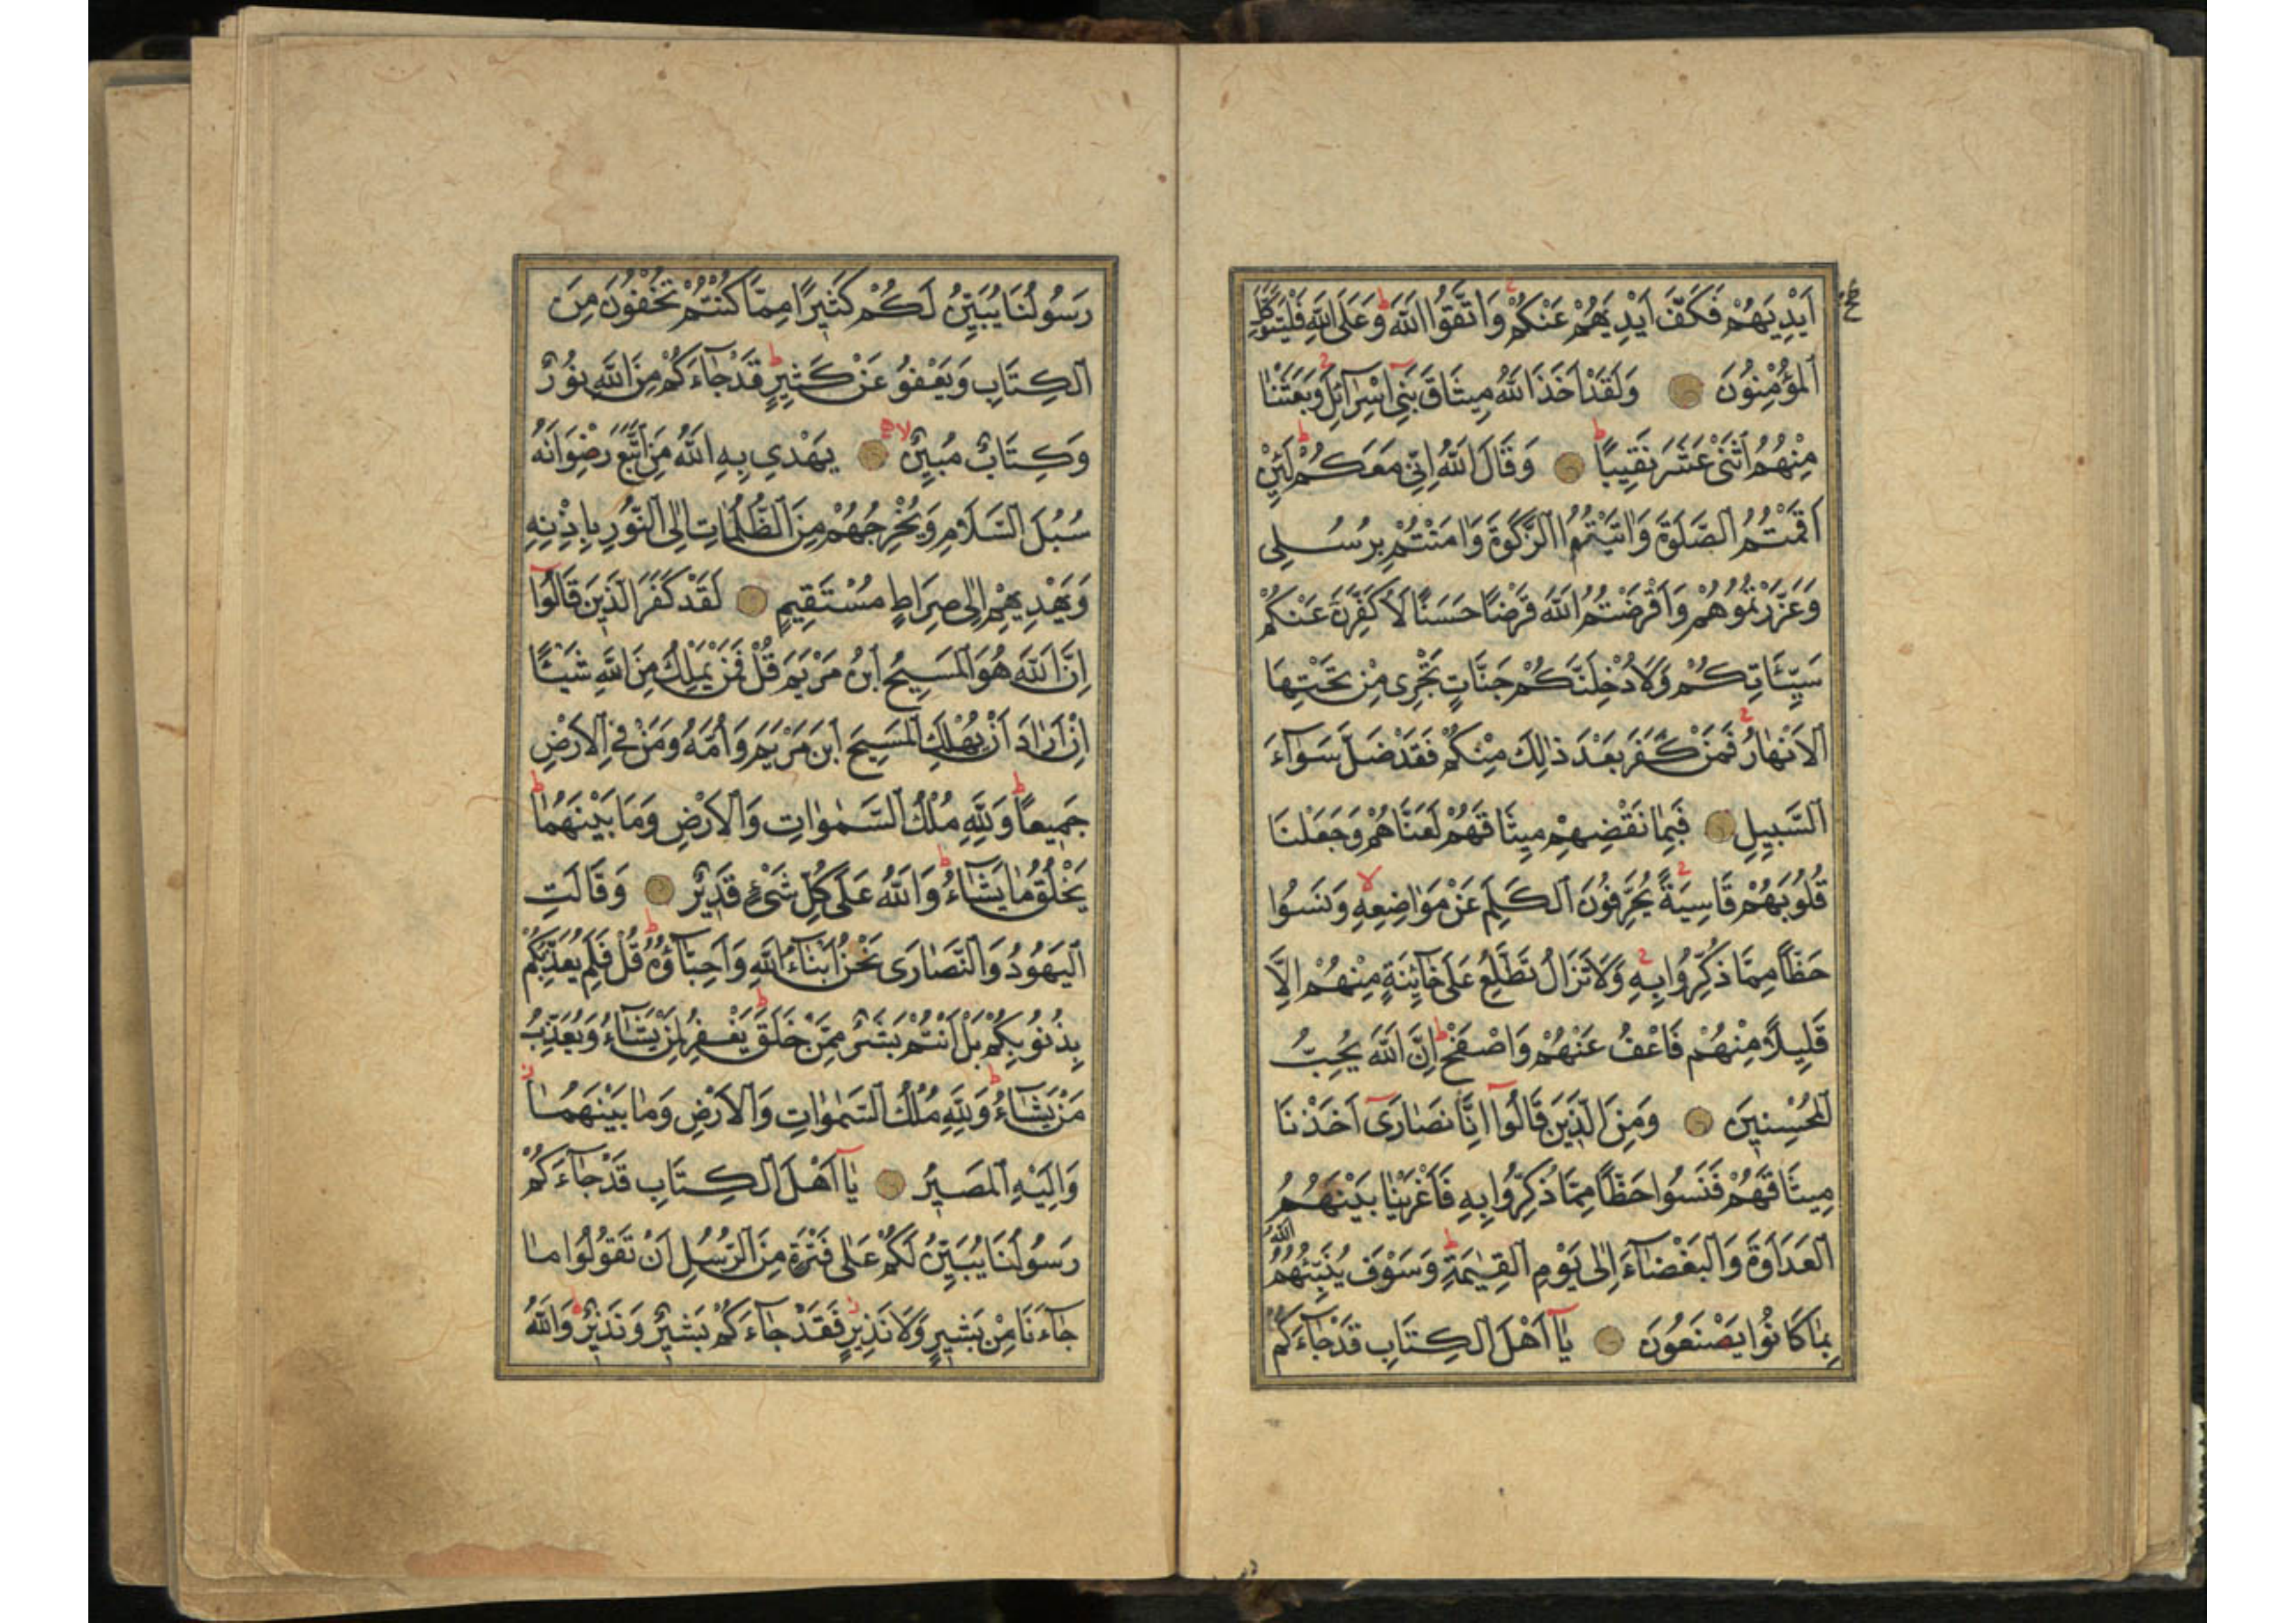 اَيْدِيَهُمْ فَكَفَّ اَيْدِيَهُمْ عَنْكُمْ وَاتَّقُوا اللّٰهَ وَعَلَى اللّٰهِ فَلْيَتَوَكَّلِ
الْمُؤْمِنُونَ وَلَقَدْ اَخَذَ اللّٰهُ مِيثَاقَ بَنِٓى اِسْرَٓائِلَ وَبَعَثْنَا
مِنْهُمُ اثْنَىْ عَشَرَ نَقِيبًا وَقَالَ اللّٰهُ اِنِّى مَعَكُمْ لَئِنْ
اَقَمْتُمُ الصَّلٰوةَ وَاٰتَيْتُمُ الزَّكٰوةَ وَاٰمَنْتُمْ بِرُسُلِى
وَعَزَّرْتُمُوهُمْ وَاَقْرَضْتُمُ اللّٰهَ قَرْضًا حَسَنًا لَاُكَفِّرَنَّ عَنْكُمْ
سَيِّئَاتِكُمْ وَلَاُدْخِلَنَّكُمْ جَنَّاتٍ تَجْرِى مِنْ تَحْتِهَا
الْاَنْهَارُ فَمَنْ كَفَرَ بَعْدَ ذٰلِكَ مِنْكُمْ فَقَدْ ضَلَّ سَوَٓاءَ
السَّبِيلِ فَبِمَا نَقْضِهِمْ مِيثَاقَهُمْ لَعَنَّاهُمْ وَجَعَلْنَا
قُلُوبَهُمْ قَاسِيَةً يُحَرِّفُونَ الْكَلِمَ عَنْ مَوَاضِعِهِ وَنَسُوا
حَظًّا مِمَّا ذُكِّرُوا بِهِ وَلَا تَزَالُ تَطَّلِعُ عَلٰى خَٓائِنَةٍ مِنْهُمْ اِلَّا
قَلِيلًا مِنْهُمْ فَاعْفُ عَنْهُمْ وَاصْفَحْ اِنَّ اللّٰهَ يُحِبُّ
الْمُحْسِنِينَ وَمِنَ الَّذِينَ قَالُٓوا اِنَّا نَصَارٰٓى اَخَذْنَا
مِيثَاقَهُمْ فَنَسُوا حَظًّا مِمَّا ذُكِّرُوا بِهِ فَاَغْرَيْنَا بَيْنَهُمُ
الْعَدَاوَةَ وَالْبَغْضَٓاءَ اِلٰى يَوْمِ الْقِيٰمَةِ وَسَوْفَ يُنَبِّئُهُمُ اللّٰهُ
بِمَا كَانُوا يَصْنَعُونَ يَٓا اَهْلَ الْكِتَابِ قَدْ جَٓاءَكُمْ
رَسُولُنَا يُبَيِّنُ لَكُمْ كَثِيرًا مِمَّا كُنْتُمْ تُخْفُونَ مِنَ
الْكِتَابِ وَيَعْفُو عَنْ كَثِيرٍ قَدْ جَٓاءَكُمْ مِنَ اللّٰهِ نُورٌ
وَكِتَابٌ مُبِينٌ يَهْدِى بِهِ اللّٰهُ مَنِ اتَّبَعَ رِضْوَانَهُ
سُبُلَ السَّلَامِ وَيُخْرِجُهُمْ مِنَ الظُّلُمَاتِ اِلَى النُّورِ بِاِذْنِهِ
وَيَهْدِيهِمْ اِلٰى صِرَاطٍ مُسْتَقِيمٍ لَقَدْ كَفَرَ الَّذِينَ قَالُٓوا
اِنَّ اللّٰهَ هُوَ الْمَسِيحُ ابْنُ مَرْيَمَ قُلْ فَمَنْ يَمْلِكُ مِنَ اللّٰهِ شَيْئًا
اِنْ اَرَادَ اَنْ يُهْلِكَ الْمَسِيحَ ابْنَ مَرْيَمَ وَاُمَّهُ وَمَنْ فِى الْاَرْضِ
جَمِيعًا وَلِلّٰهِ مُلْكُ السَّمٰوَاتِ وَالْاَرْضِ وَمَا بَيْنَهُمَا
يَخْلُقُ مَا يَشَٓاءُ وَاللّٰهُ عَلٰى كُلِّ شَىْءٍ قَدِيرٌ وَقَالَتِ
الْيَهُودُ وَالنَّصَارٰى نَحْنُ اَبْنَٓاءُ اللّٰهِ وَاَحِبَّٓاؤُهُ قُلْ فَلِمَ يُعَذِّبُكُمْ
بِذُنُوبِكُمْ بَلْ اَنْتُمْ بَشَرٌ مِمَّنْ خَلَقَ يَغْفِرُ لِمَنْ يَشَٓاءُ وَيُعَذِّبُ
مَنْ يَشَٓاءُ وَلِلّٰهِ مُلْكُ السَّمٰوَاتِ وَالْاَرْضِ وَمَا بَيْنَهُمَا
وَاِلَيْهِ الْمَصِيرُ يَٓا اَهْلَ الْكِتَابِ قَدْ جَٓاءَكُمْ
رَسُولُنَا يُبَيِّنُ لَكُمْ عَلٰى فَتْرَةٍ مِنَ الرُّسُلِ اَنْ تَقُولُوا مَا
جَٓاءَنَا مِنْ بَشِيرٍ وَلَا نَذِيرٍ فَقَدْ جَٓاءَكُمْ بَشِيرٌ وَنَذِيرٌ وَاللّٰهُ